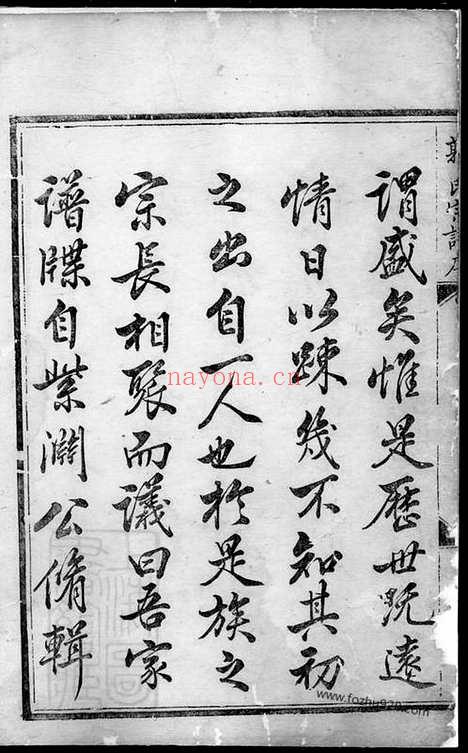 謂盛矣惟是歷世既遠
情日以踈幾不知其初
之出自一人也於是族之
宗長相聚而議曰吾家
譜牒自紫澗公脩輯
nayona.cn
www.fozhu920.com